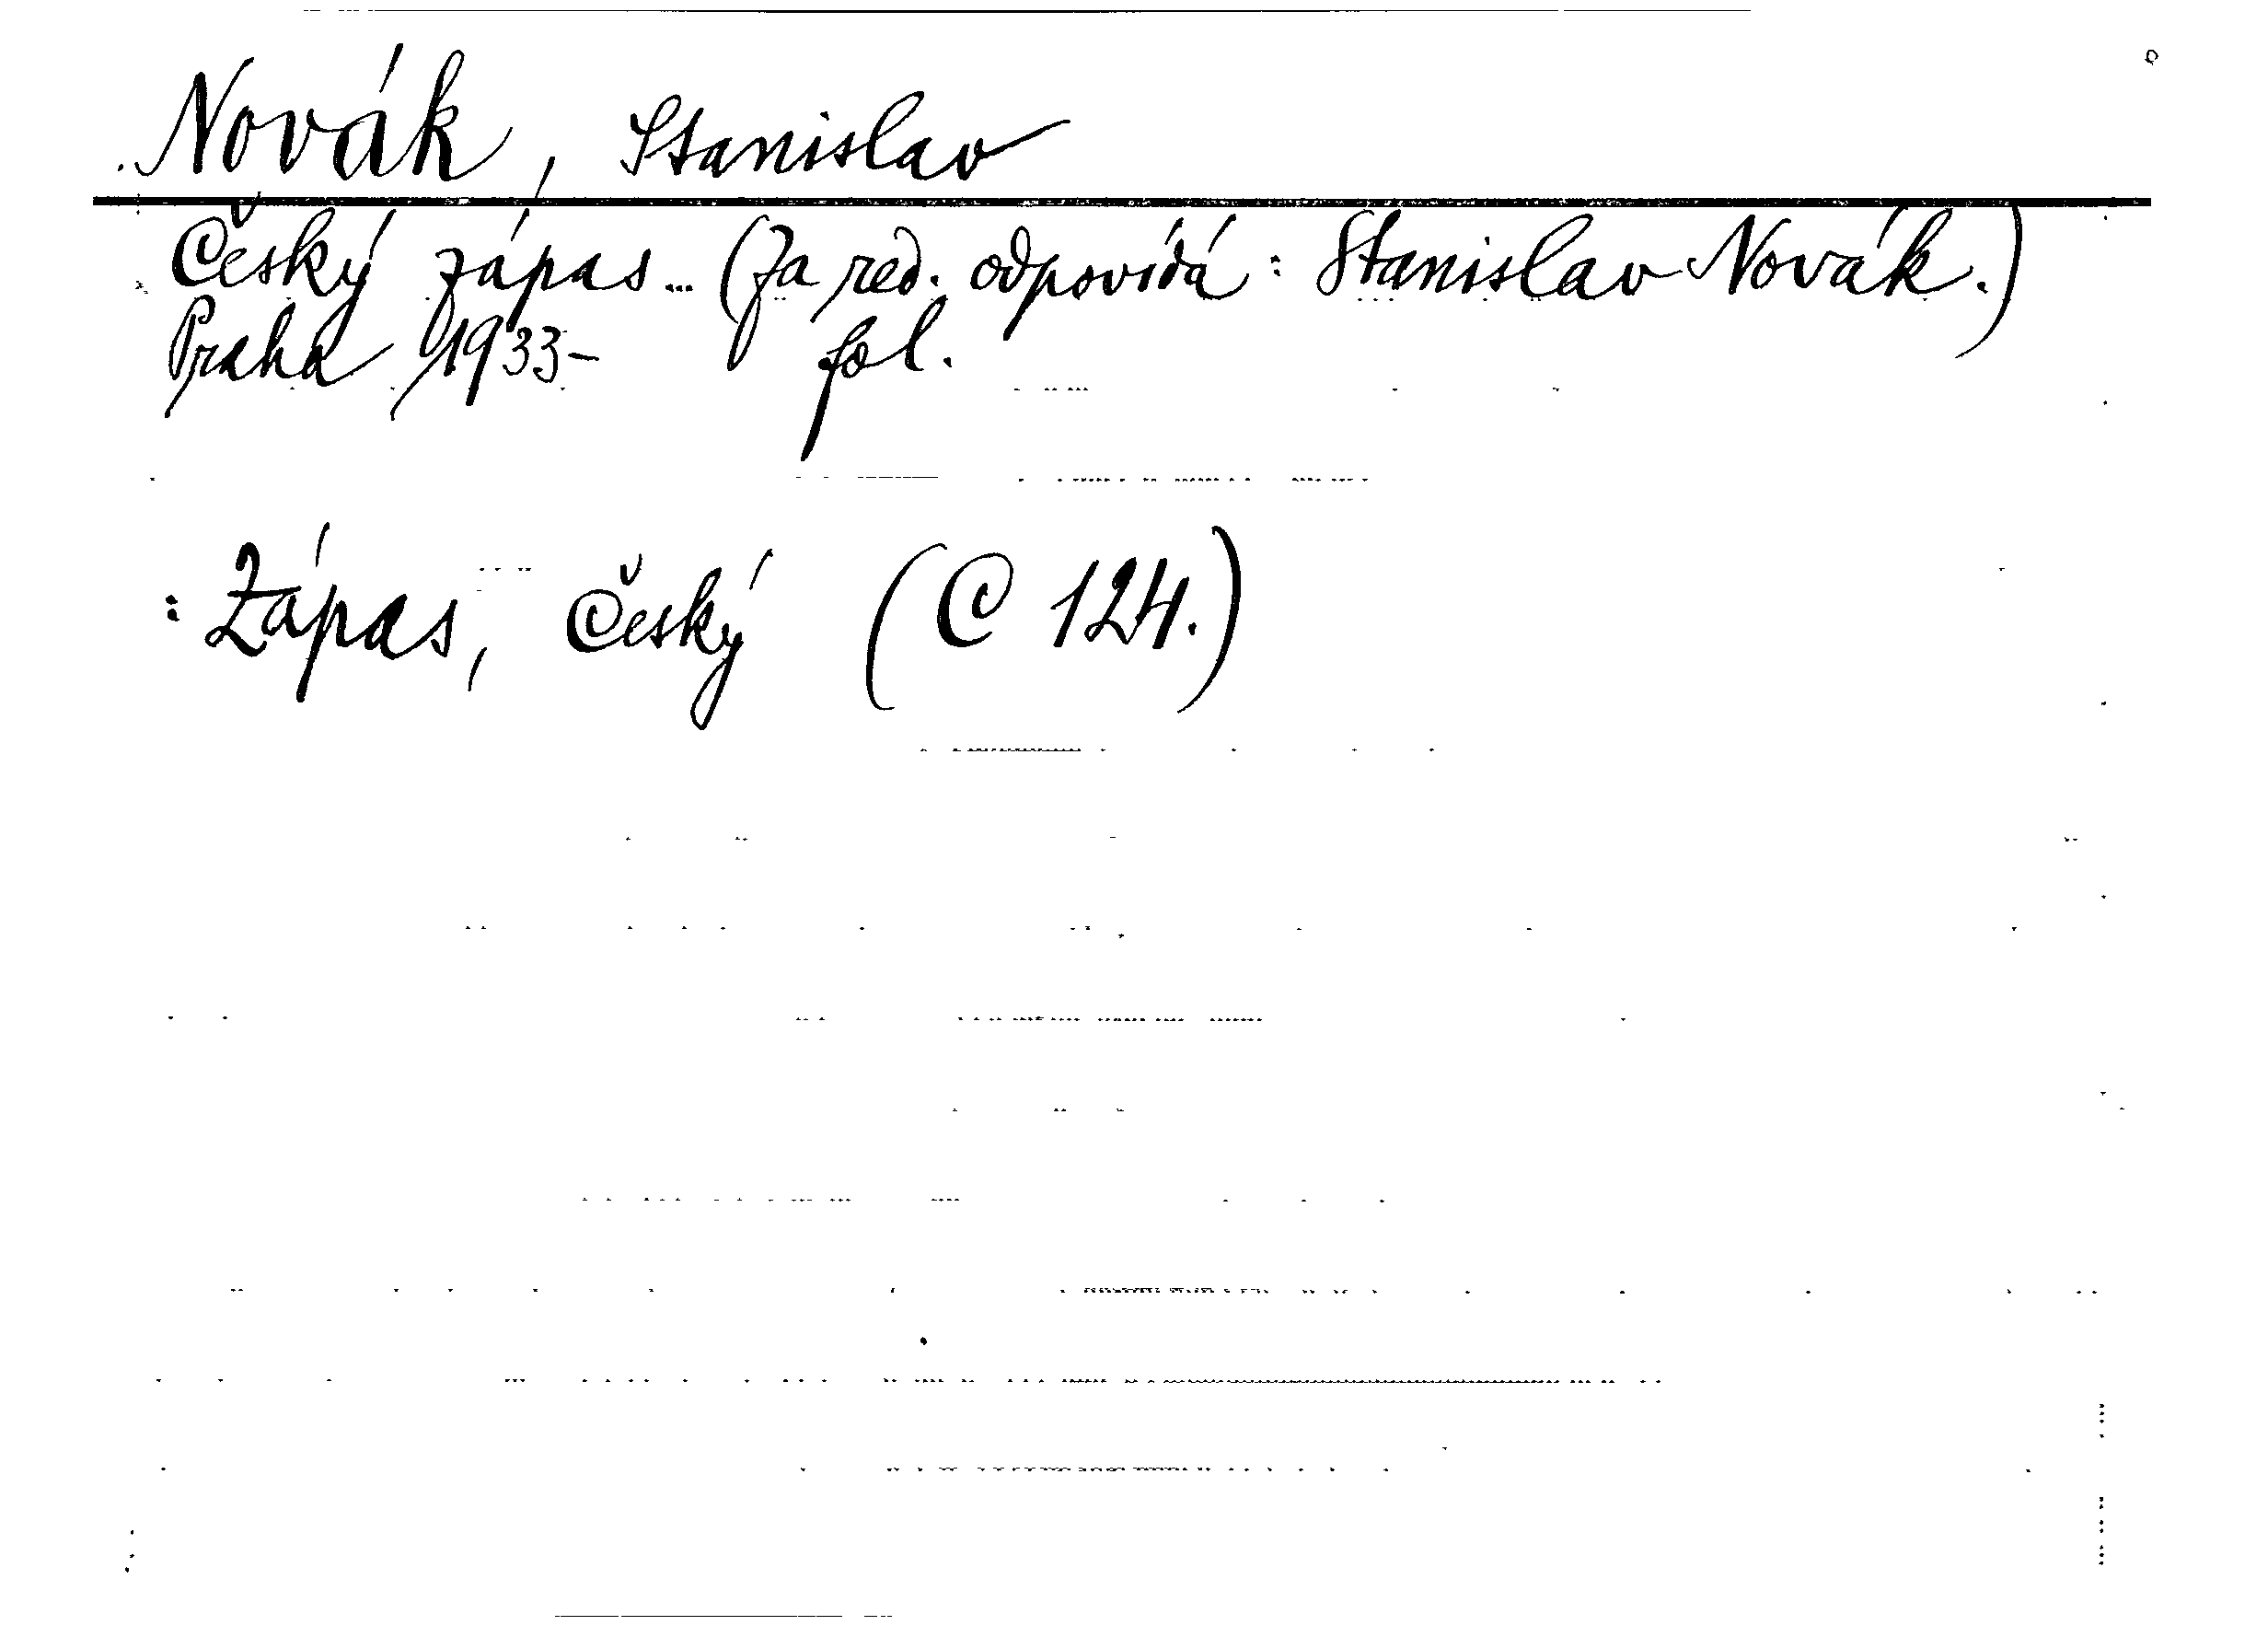 Novák, Stanislav
Český zápas... (Za red. odpovídá: Stanislav Novák.)
Praha 1933- fol.
: Zápas, Český (C 124.)